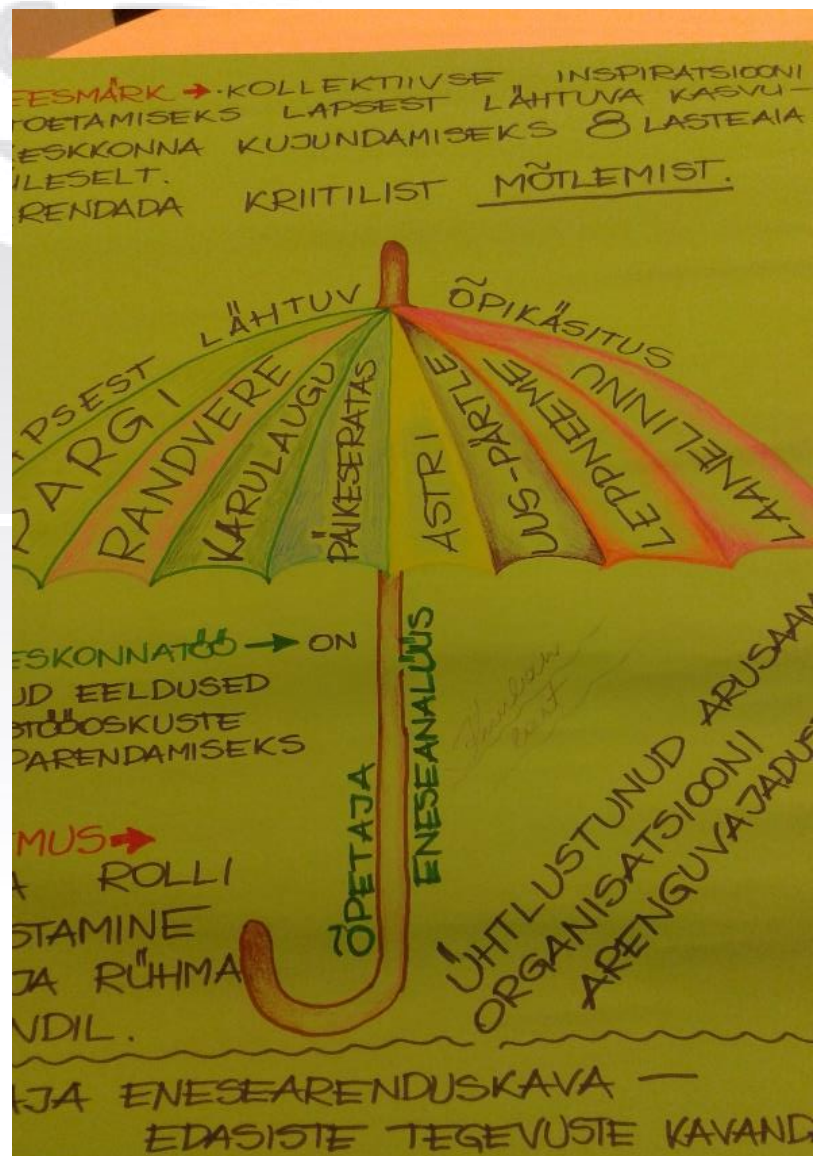 EESMÄRK → KOLLEKTIIVSE INSPIRATSIOONI
TOETAMISEKS LAPSEST LÄHTUVA KASVU-
KESKKONNA KUJUNDAMISEKS 8 LASTEAIA
ÜLESELT.
ARENDADA KRIITILIST MÕTLEMIST.
LAPSEST LÄHTUV ÕPIKÄSITUS
PARGI
RANDVERE
KARULAUGU
PÄIKESERATAS
ASTRI
UUS-PÄRTLE
LEPPNEEME
LAANELINNU
ESKONNATÖÖ → ON
UD EELDUSED
STÖÖOSKUSTE
PARENDAMISEKS
ÕPETAJA
ENESEANALÜÜS
MUS →
A ROLLI
STAMINE
JA RÜHMA
NDIL.
ÜHTLUSTUNUD ARUSAAM
ORGANISATSIOONI
ARENGUVAJADUS
AJA ENESEARENDUSKAVA —
EDASISTE TEGEVUSTE KAVAND